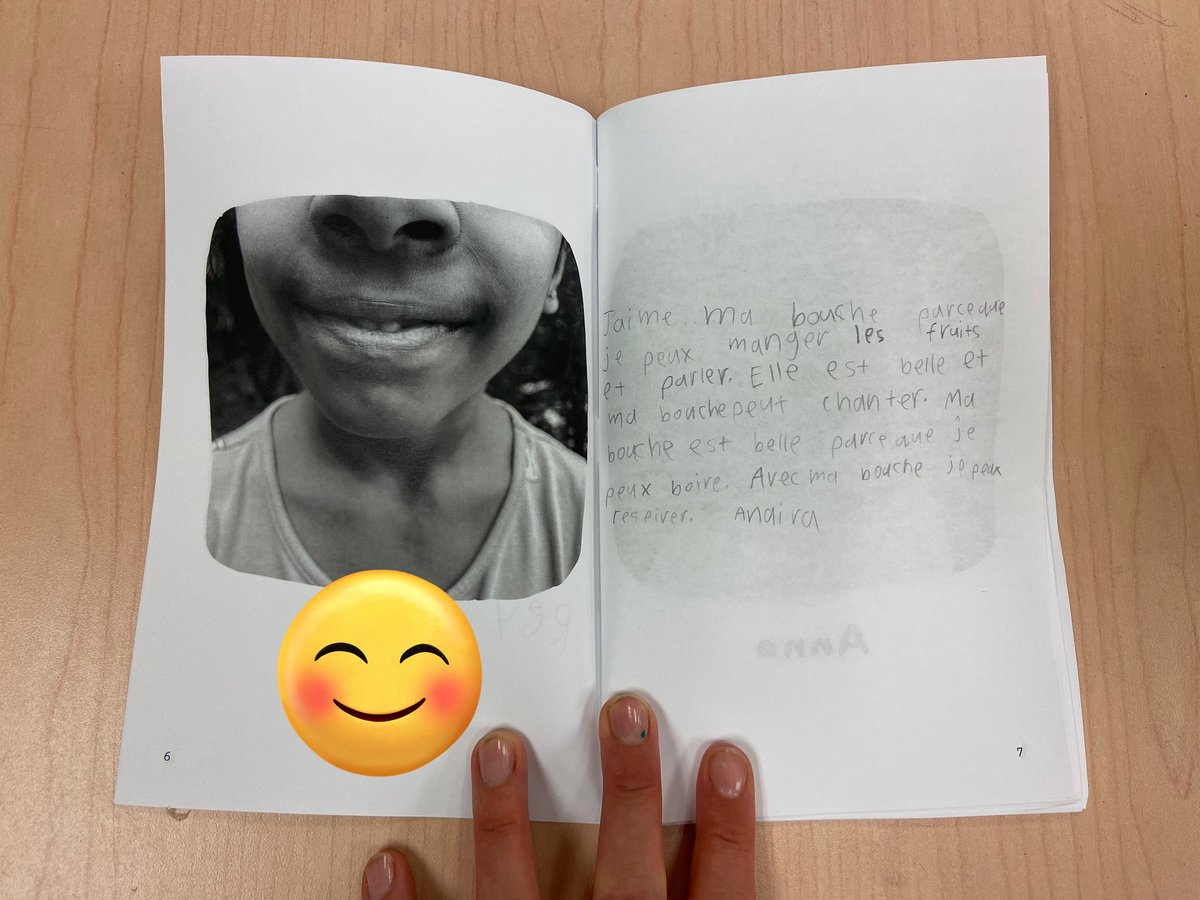 J'aime ma bouche parceque
je peux manger les fruits
et parler. Elle est belle et
ma bouche peut chanter. Ma
bouche est belle parceque je
peux boire. Avec ma bouche je peux
respirer. Anaira
Anna
6
7